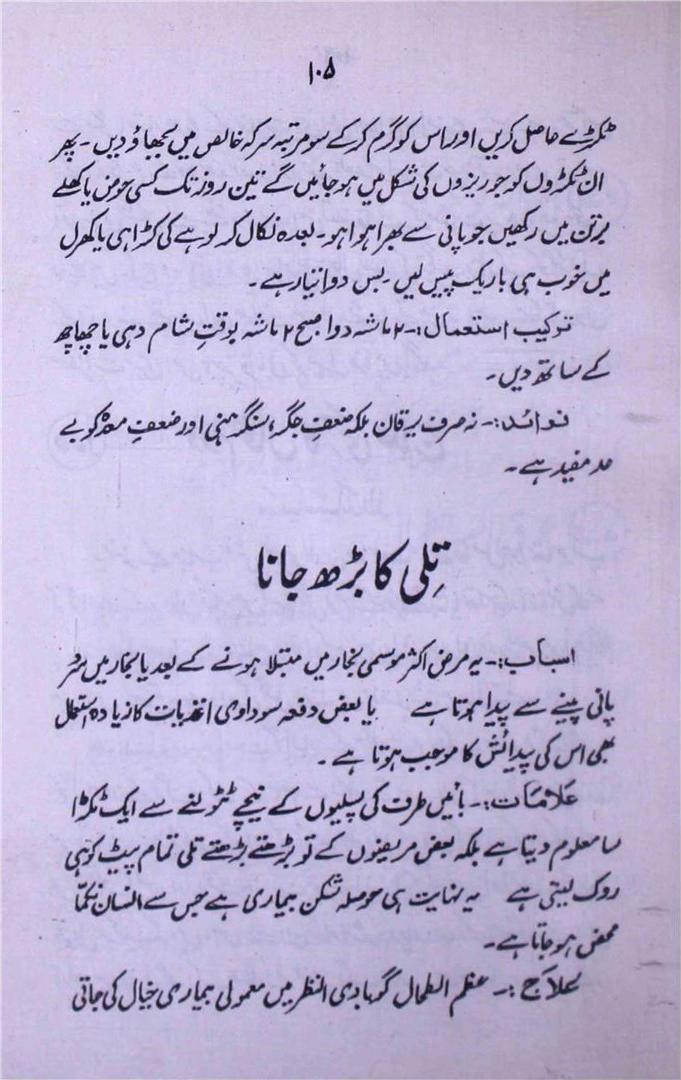 ۱۰۵
ٹکڑے حاصل کریں اور اس کو گرم کر کے سو مرتبہ سرکہ خالص میں بجھاؤ دیں۔ پھر
ان ٹکڑوں کو جو ریزوں کی شکل میں ہو جائیں گے تین روز تک کسی حوض یا کھلے
برتن میں رکھیں جو پانی سے بھرا ہوا ہو۔ بعدہ نکال کر لوہے کی کڑاہی یا کھرل
میں خوب ہی باریک پیس لیں۔ بس دوا تیار ہے۔
ترکیب استعمال:۔ ۲ ماشہ دوا صبح ۲ ماشہ بوقتِ شام دہی یا چھاچھ
کے ساتھ دیں۔
فوائد:۔ نہ صرف یرقان بلکہ ضعفِ جگر، سنگرہنی اور ضعفِ معدہ کو بے
حد مفید ہے۔
تِلی کا بڑھ جانا
اسباب:۔ یہ مرض اکثر موسمی بخار میں مبتلا ہونے کے بعد یا بخار میں سرد
پانی پینے سے پیدا ہوتا ہے یا بعض دفعہ سوداوی اغذیات کا زیادہ استعمال
بھی اس کی پیدائش کا موجب ہوتا ہے۔
علامات:۔ بائیں طرف کی پسلیوں کے نیچے ٹٹولنے سے ایک ٹکڑا
سا معلوم دیتا ہے بلکہ بعض مریضوں کے تو بڑھتے بڑھتے تلی تمام پیٹ کو ہی
روک لیتی ہے یہ نہایت ہی حوصلہ شکن بیماری ہے جس سے انسان نکمّا
محض ہو جاتا ہے۔
علاج:۔ عظم الطحال گو بادی النظر میں معمولی بیماری خیال کی جاتی